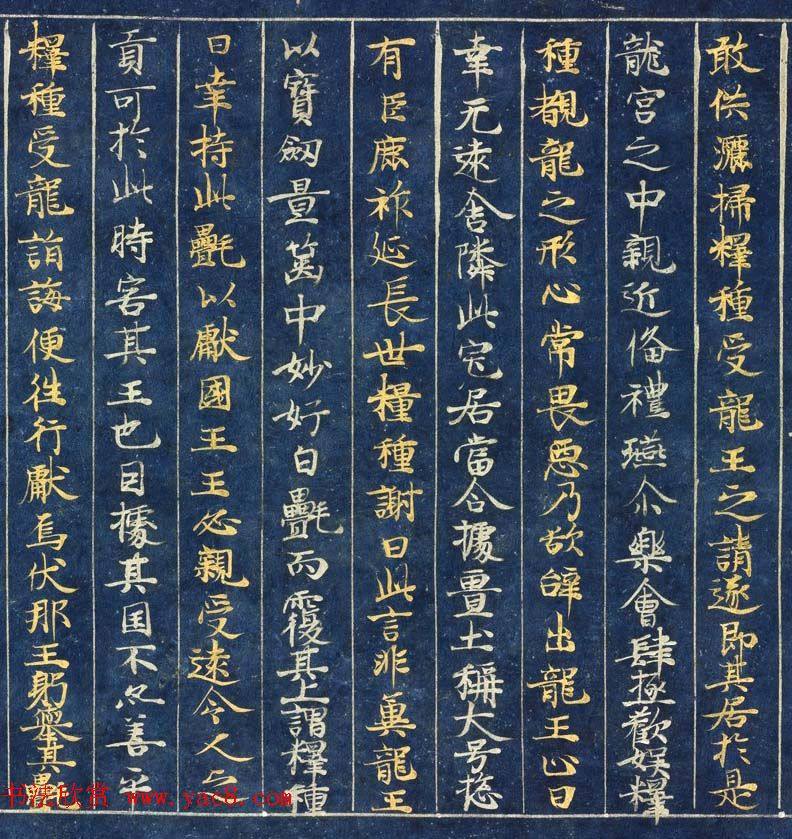 敢供灑掃釋種受龍王之請遂即其居於是
龍宮之中親近俻禮燕尒樂會肆極歡娛釋
種覩龍之形心常畏惡乃欲辞出龍王止曰
幸无遠舍隣此宅居當令據畺土稱大号惣
有臣庶祚延長世糧種謝曰此言非冀龍王
以寶劔置篋中妙好白氎而覆其上謂釋種
曰幸持此氎以獻國王王必親受遠令人之
貢可於此時害其王也因據其国不亦善乎
釋種受龍詣誨便往行獻烏伏那王躬舉其氎
书法欣赏 www.yac8.com